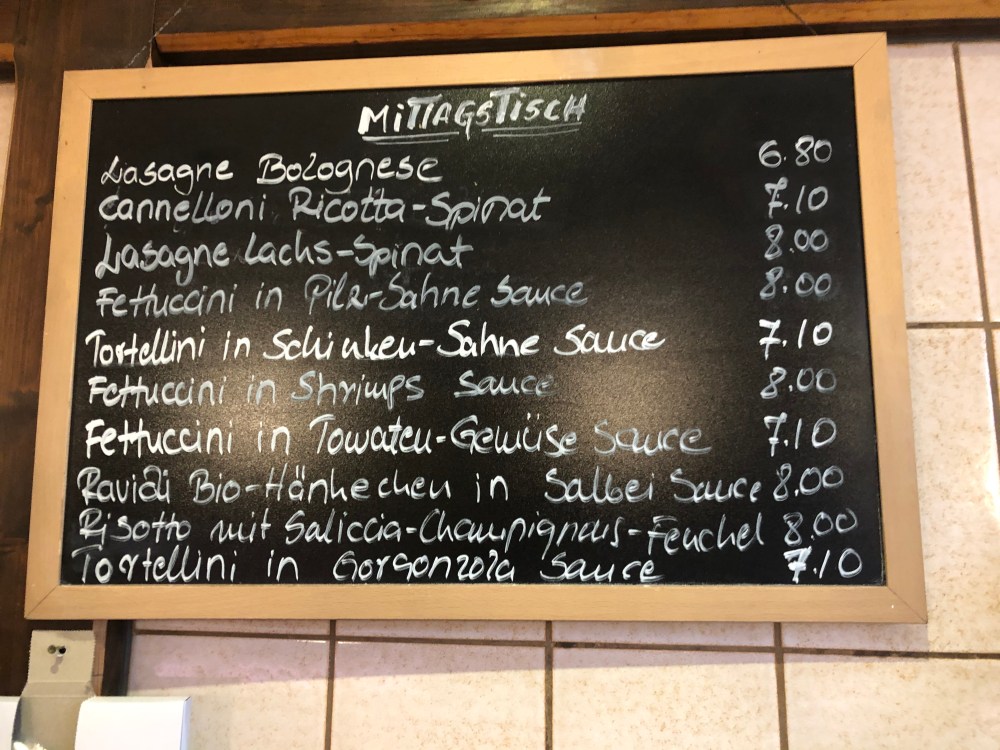 MITTAGSTISCH
Lasagne Bolognese 6.80
Cannelloni Ricotta-Spinat 7.10
Lasagne Lachs-Spinat 8.00
Fettuccini in Pilz-Sahne Sauce 8.00
Tortellini in Schinken-Sahne Sauce 7.10
Fettuccini in Shrimps Sauce 8.00
Fettuccini in Tomaten-Gemüse Sauce 7.10
Ravioli Bio-Hänhechen in Salbei Sauce 8.00
Risotto mit Saliccia-Champignons-Fenchel 8.00
Tortellini in Gorgonzola Sauce 7.10